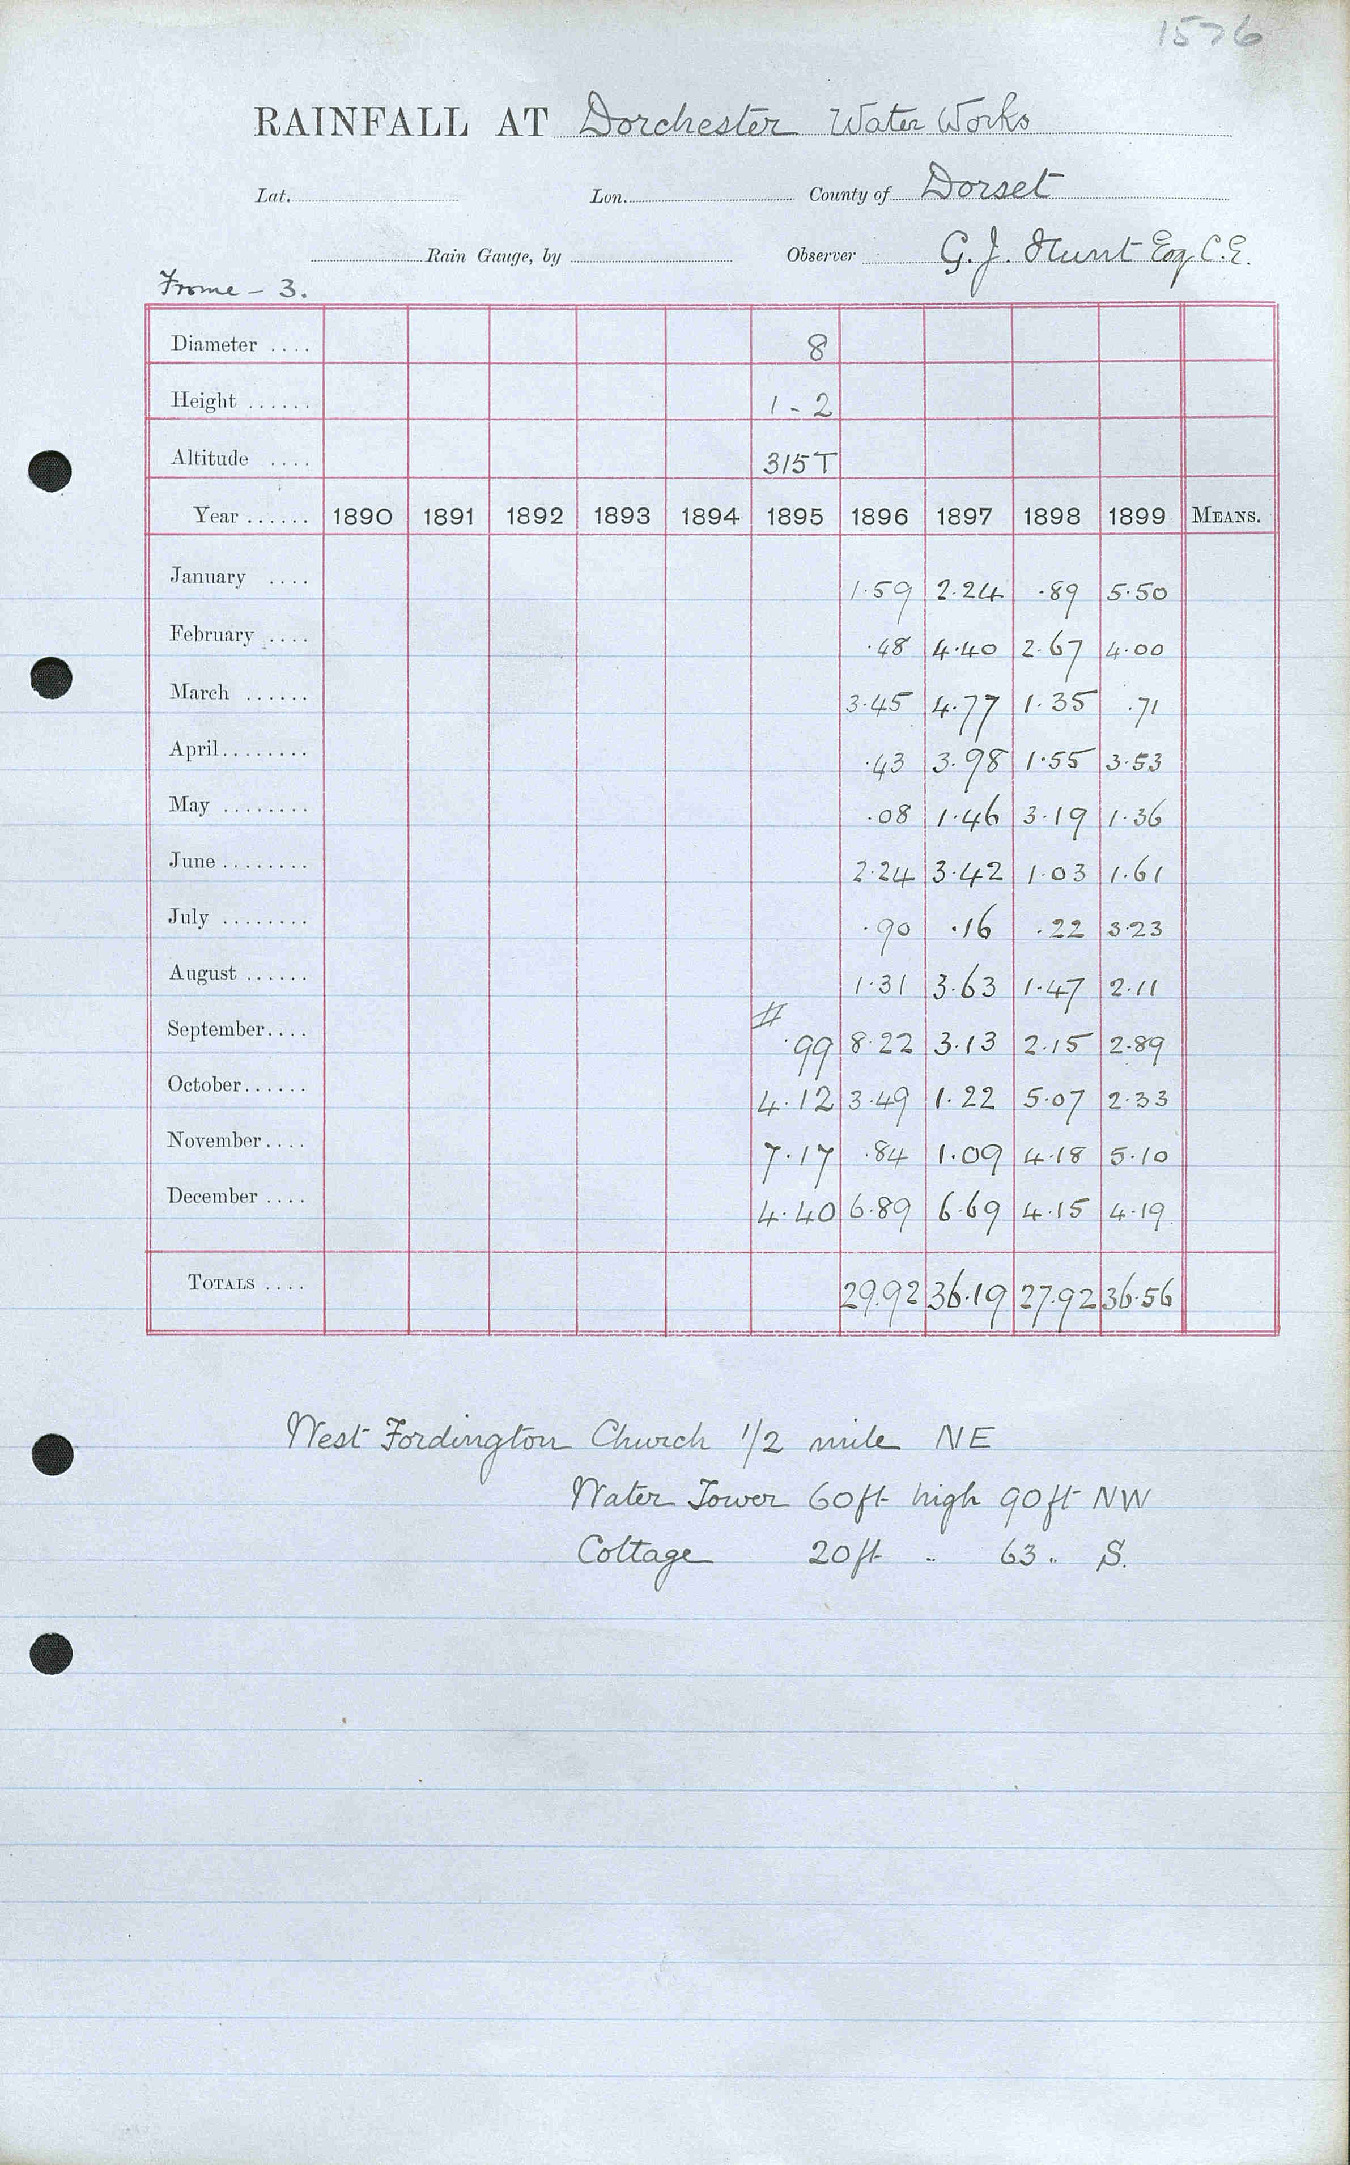 1576
RAINFALL AT Dorchester Water Works
Lat. Lon. County of Dorset
Rain Gauge, by Observer G. J. Hunt Esq C.E.
Frome - 3.
Diameter .... 8
Height ...... 1 - 2
Altitude .... 315 T
Year ...... 1890 1891 1892 1893 1894 1895 1896 1897 1898 1899 MEANS.
January .... 1.59 2.24 .89 5.50
February .... .48 4.40 2.67 4.00
March ...... 3.45 4.77 1.35 .71
April ........ .43 3.98 1.55 3.53
May ........ .08 1.46 3.19 1.36
June ........ 2.24 3.42 1.03 1.61
July ........ .90 .16 .22 3.23
August ...... 1.31 3.63 1.47 2.11
#
September .... .99 8.22 3.13 2.15 2.89
October ...... 4.12 3.49 1.22 5.07 2.33
November .... 7.17 .84 1.09 4.18 5.10
December .... 4.40 6.89 6.69 4.15 4.19
TOTALS .... 29.92 36.19 27.92 36.56
West Fordington Church 1/2 mile NE
Water Tower 60ft high 90ft NW
Cottage 20ft " 63 " S.